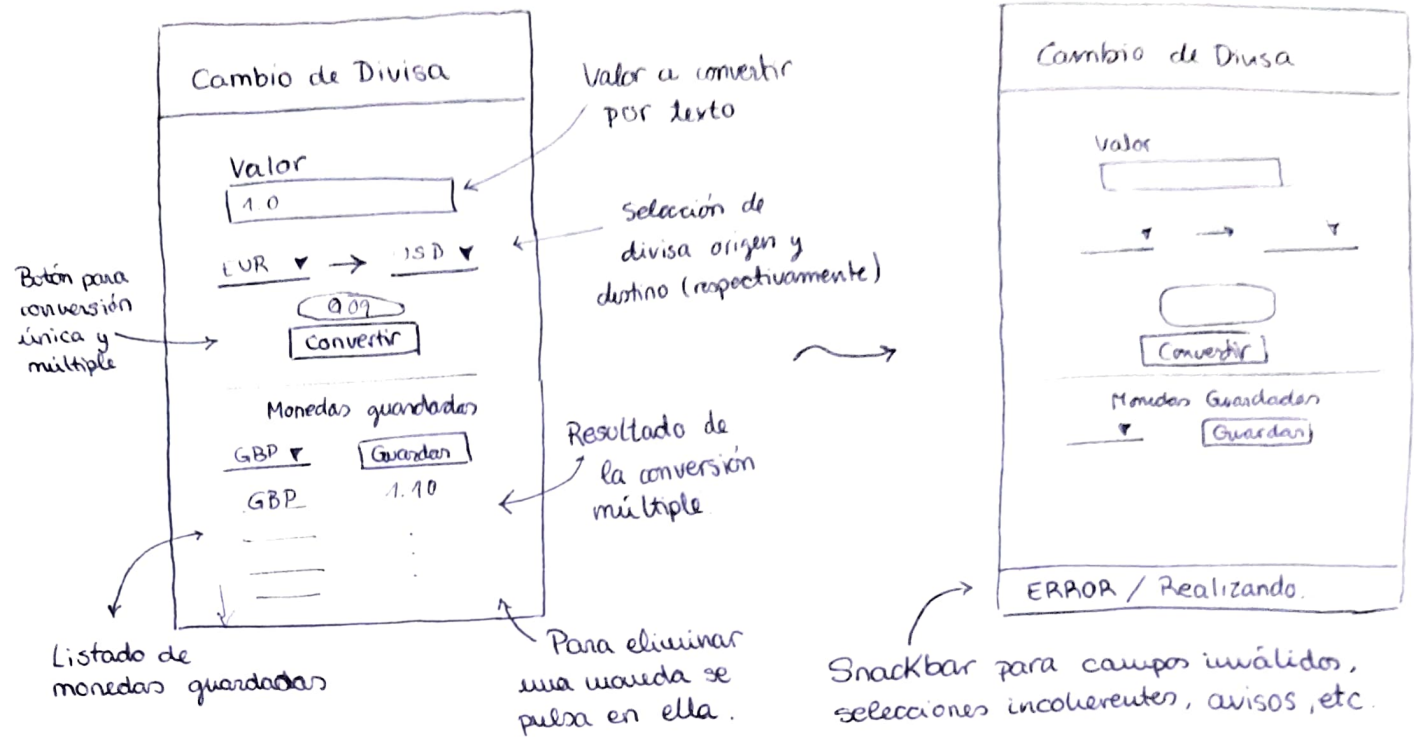 Cambio de Divisa
Valor
1.0
EUR → USD
909
Convertir
Monedas guardadas
GBP Guardar
GBP 1.10
Valor a convertir
por texto
Selección de
divisa origen y
destino (respectivamente)
Botón para
conversión
única y
múltiple
Resultado de
la conversión
múltiple
Listado de
monedas guardadas
Para eliminar
una moneda se
pulsa en ella.
Cambio de Divisa
Valor
→
Convertir
Monedas Guardadas
Guardar
ERROR / Realizando.
Snackbar para campos inválidos,
selecciones incoherentes, avisos, etc.